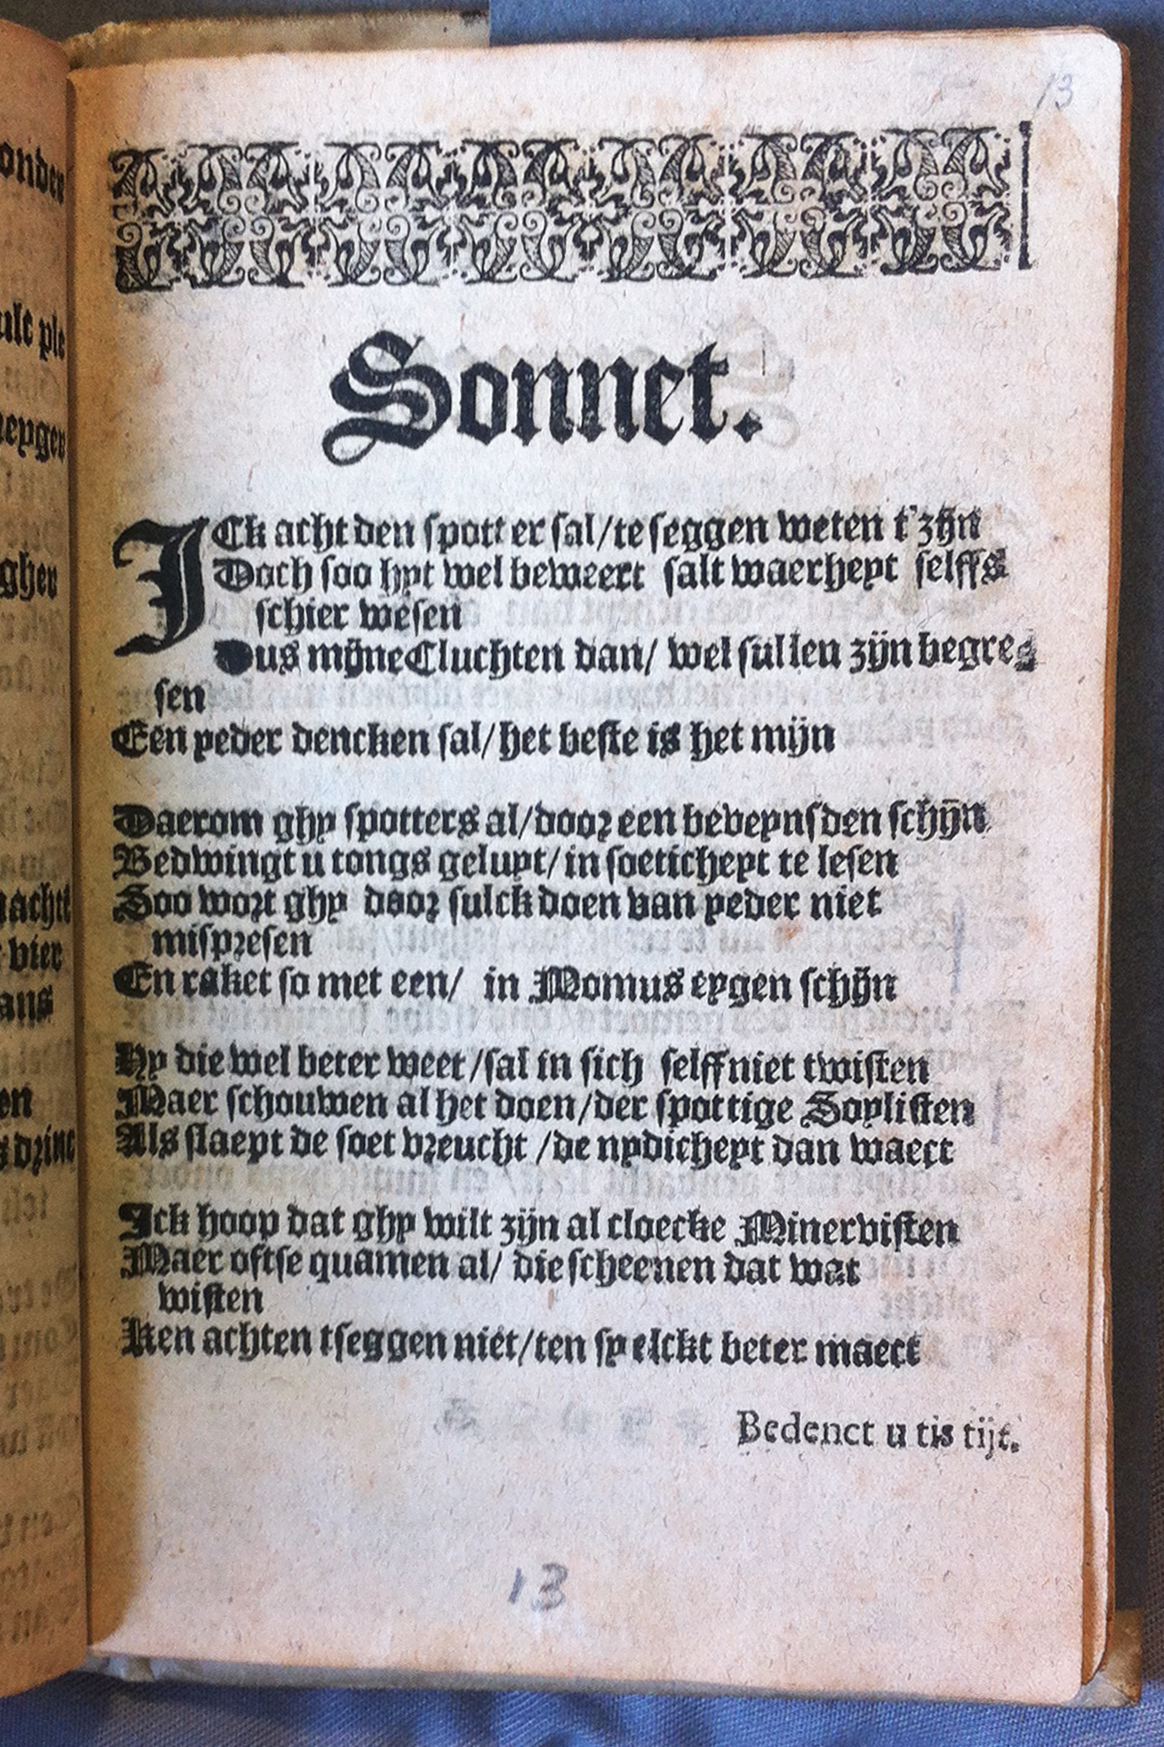 13
Sonnet.
ICk acht den spott er sal/te seggen weten t'zijn
Doch soo hyt wel beweert salt waerheyt selffs
schier wesen
Dus mijne Cluchten dan/ wel sullen zijn begre-
sen
Een yeder dencken sal/het beste is het mijn
Daerom ghy spotters al/door een beveynsden schijn
Bedwingt u tongs geluyt/in soeticheyt te lesen
Soo wort ghy door sulck doen van yeder niet
mispresen
En raket so met een/ in Momus eygen schijn
Hy die wel beter weet/sal in sich selff niet twisten
Maer schouwen al het doen/der spottige Soylisten
Als slaept de soet vreucht/de nydicheyt dan waect
Ick hoop dat ghy wilt zijn al cloecke Minervisten
Maer oftse quamen al/ die scheenen dat wat
wisten
Ken achten tseggen niet/ten sy elckt beter maect
Bedenct u tis tijt.
13
onder
ult ple
eyger
gher
nacht
vier
ans
en
s drinc